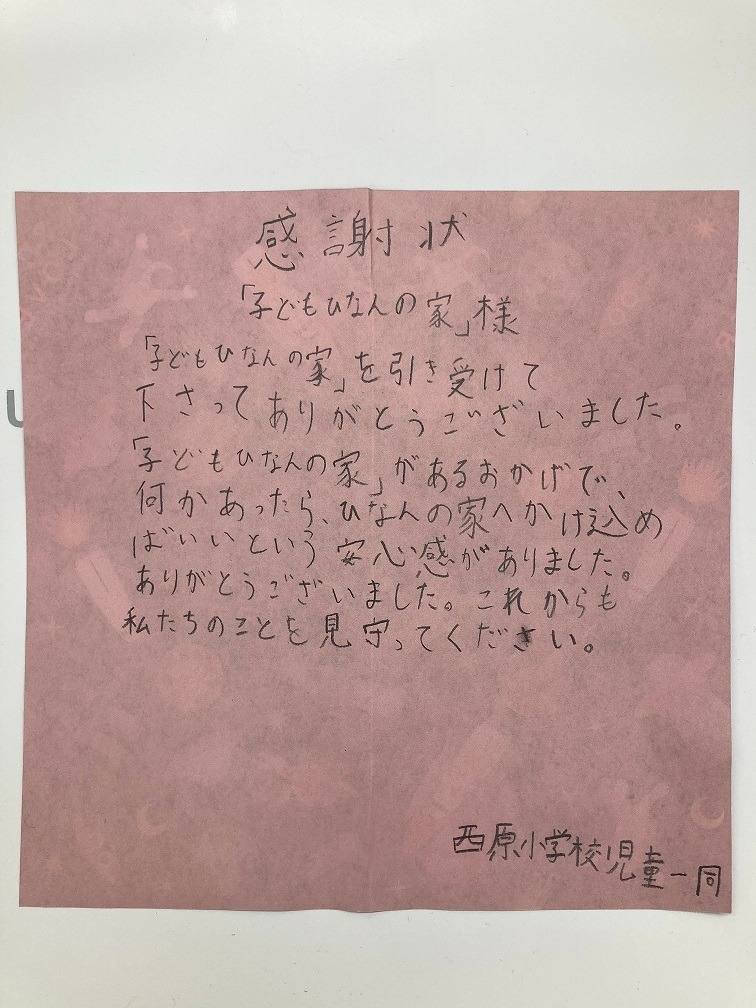 感謝状
「子どもひなんの家」様
「子どもひなんの家」を引き受けて
下さってありがとうございました。
「子どもひなんの家」があるおかげで、
何かあったら、ひなんの家へかけ込め
ばいいという安心感がありました。
ありがとうございました。これからも
私たちのことを見守ってください。
西原小学校児童一同